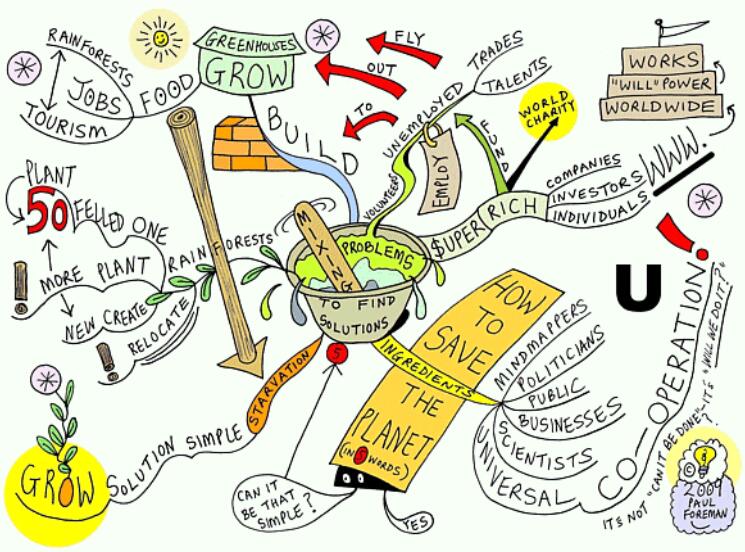 RAINFORESTS
JOBS
TOURISM
FOOD
GREENHOUSES
GROW
BUILD
FLY
OUT
TO
UNEMPLOYED
VOLUNTEERS
TRADES
TALENTS
EMPLOY
FUND
WORLD
CHARITY
WORKS
"WILL" POWER
WORLDWIDE
WWW.
$UPER RICH
COMPANIES
INVESTORS
INDIVIDUALS
PLANT
50 FELLED ONE
RAINFORESTS
! MORE PLANT
NEW CREATE
! RELOCATE
MIXING
PROBLEMS
TO FIND
SOLUTIONS
5
STARVATION
SOLUTION SIMPLE
GROW
HOW
TO
SAVE
THE
PLANET
(IN 5 WORDS)
INGREDIENTS
MINDMAPPERS
POLITICIANS
PUBLIC
BUSINESSES
SCIENTISTS
UNIVERSAL
CO-OPERATION
U
!
IT'S NOT "CAN IT BE DONE" - IT'S "WILL WE DO IT?"
?
CAN IT
BE THAT
SIMPLE?
YES
©
2009
PAUL
FOREMAN